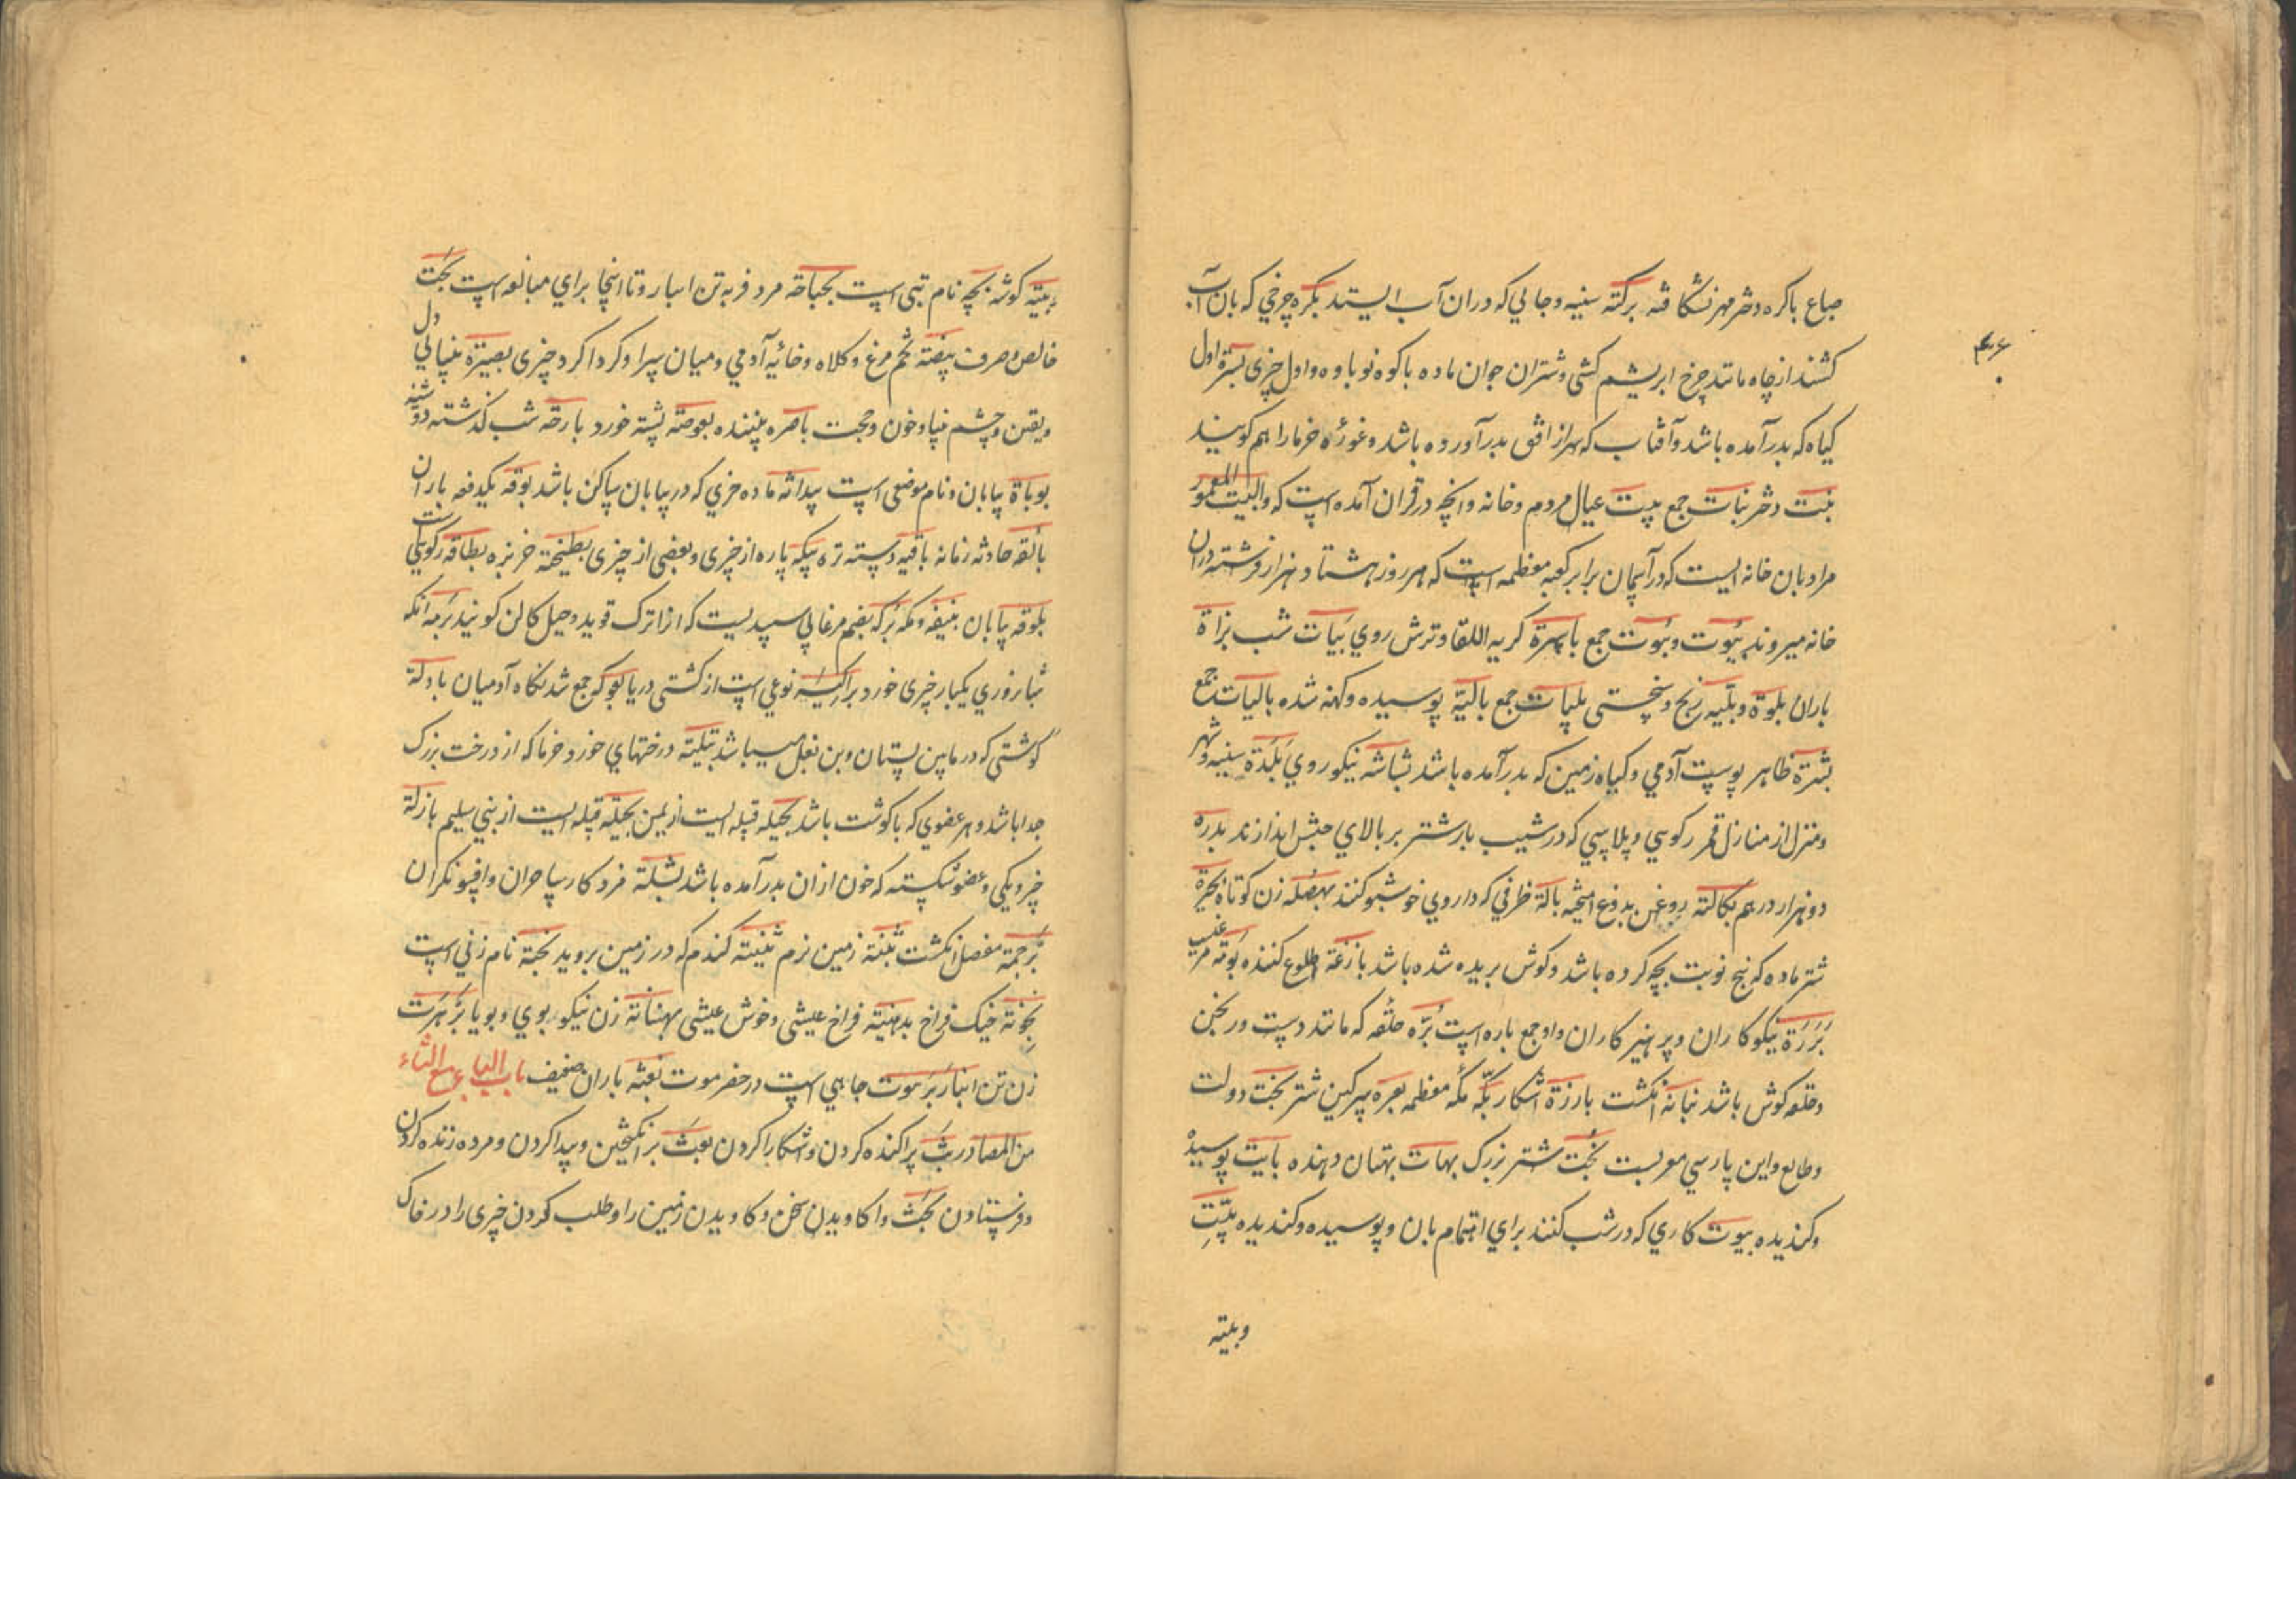 جماع باکره دختر مهر نشکافته برکة سینه و جایی که دران آب ایستد بکرة چرخی که بان آب
کشند از چاه مانند چرخ ابریشم کشی و شتران جوان ماده باکوه نوباوه و اول چیزی بسرة اول
کیاه که بدر آمده باشد و آفتاب که سر از افق بدر آورده باشد و غورۀ خرما را هم کویند
بنت دختر بنات جمع بیت عیال مردم و خانه و انچه در قران آمده است که والبیت المعمور
مراد بان خانه ایست که در آسمان برابر کعبه معظمه است که هر روز هشتاد هزار فرشته دران
خانه میروند بیُوت و بیوت جمع باسرة کریه اللقا و ترش روي بَیَات شب بزاة
باران بلوة و بلیّه رنج و سختی بلیات جمع بالیة پوسیده و کهنه شده بالیات جمع
بشرة ظاهر پوست آدمي و کیاه زمین که بدر آمده باشد بشاشه نیکو روي بَلدَة سینه و شهر
و منزل از منازل قمر رکوسي و پلاسي که در شیب بار شتر بر بالاي اندازند بدره
دو هزار درهم بکالته روغن بدوغ امیخته بالة ظرفي که داروي خوشبو کنند بهصله زن کوتاه بحیرة
شتر ماده که پنج نوبت بچه کرده باشد و کوش بریده شده باشد بازغة طلوع کننده بوته
بَرَرَة نیکوکاران و پرهیزکاران و او جمع باره است بُرّه حلقه که مانند دست ورنجن
و حلقه کوش باشد بنانة انکشت بارزة آشکار بکّه مکۀ معظمه بعره سرکین شتر بخت دولت
و طالع و این پارسي معربست بُخت شتر بزرک بهات بهتان دهنده بایت پوسیده
و کندیده بیوت کاري که در شب کنند براي اهتمام بان و پوسیده و کندیده
وبیته
کوشه بجّه نام بتی است بجباجة مرد فربه تن انبار و تا اینجا براي مبالغه است بحت
خالص و صرف بیضة تخم مرغ و کلاه و خائیه آدمي و میان سرا و کرداکرد چیزی بصیرة بینایي دل
و یقین و چشم بینا و خون و حجت باصره بیننده بعوضة پشه خورد بارحة شب کذشته دوشینه
بوباة بیابان و نام موضعی است بیدانه ماده خري که در بیابان ساکن باشد بوقه یکدفعه باران
بائقه حادثه زمانه باقیه دسته تره بتکة پاره از چیزی و بعضی از چیزی بطیخة خربزه بطاقة رکوییست
بلوقه بیابان بنیقه و مکه بُرکة بضم مرغابي سپیدیست که از اترک قوید و جیل کالن کویند بَزمه انکه
شباروزي یکبار چیزی خورد براکیة نوعي است از کشتی دریا بعوکة جمع شدنکاه آدمیان بادلة
کوشتی که در مابین پستان و بن بغل میباشد بتیلة درختهاي خورد خرما که از درخت بزرک
جدا باشد و هر عضوي که باکوشت باشد بجیله قبیله ایست از یمن بجیلة قبیله ایست از بني سلیم بازلة
چیز ویکی و عضو شکسته که خون از ان بدر آمده باشد بُسلة مزد کار ساحران و افسونکران
بُرجمة مفصل انکشت بثنة زمین نرم بثنیة کندم که در زمین بروید بحنة نام زني است
بحونة خیک فراخ بلهنیة فراخ عیشی و خوش عیشی بهنانة زن نیکو بوي و بویا بَرهَرَت
زن تن انبار بَرَهوت چاهي است در حضرموت بغثه باران ضعیف باب البا مع الثاء
من المصادر بثّ پراکنده کردن و آشکارا کردن بعث برانکیختن و پیدا کردن و مرده زنده کردن
و فرستادن بحث واکاویدن سخن و کاویدن زمین را و طلب کردن چیزی را در خاک